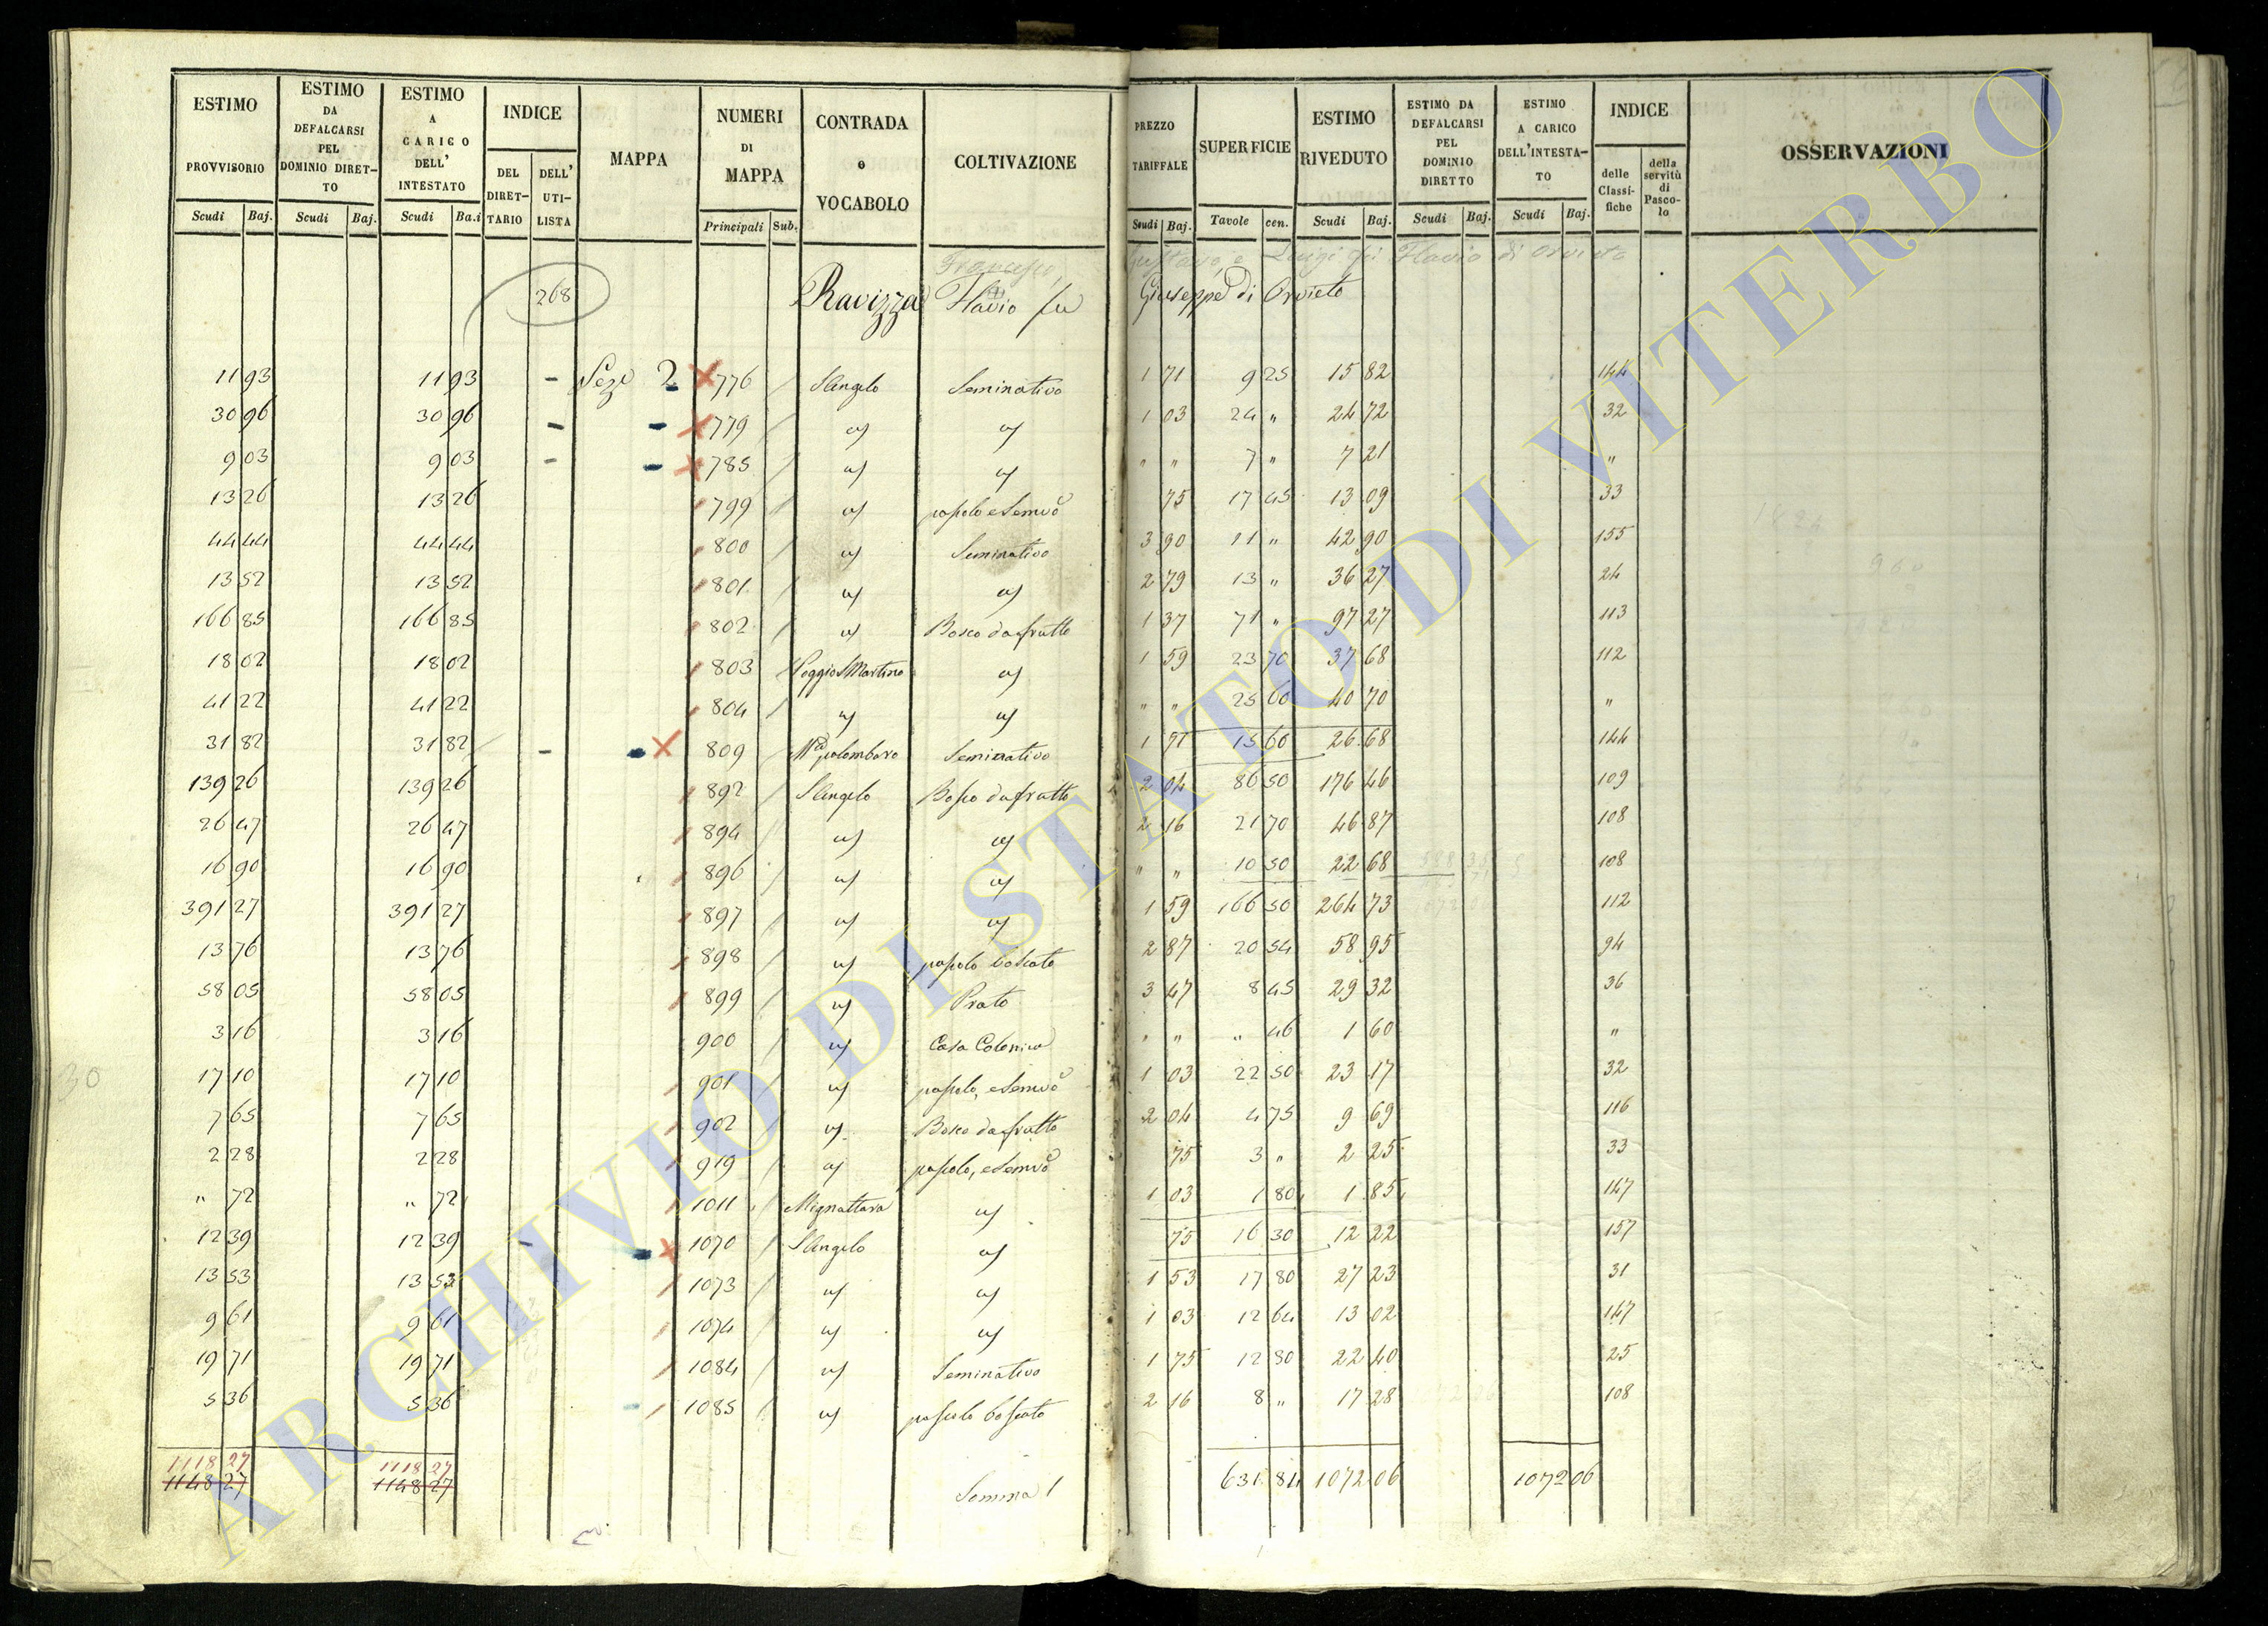 ESTIMO PROVVISORIO Scudi Baj.
ESTIMO DA DEFALCARSI PEL DOMINIO DIRET-TO Scudi Baj.
ESTIMO A CARICO DELL' INTESTATO Scudi Ba.i
INDICE DEL DIRET-TARIO DELL' UTI-LISTA
MAPPA
NUMERI DI MAPPA Principali Sub.
CONTRADA o VOCABOLO
COLTIVAZIONE
PREZZO TARIFFALE Scudi Baj.
SUPERFICIE Tavole cen.
ESTIMO RIVEDUTO Scudi Baj.
ESTIMO DA DEFALCARSI PEL DOMINIO DIRETTO Scudi Baj.
ESTIMO A CARICO DELL'INTESTA-TO Scudi Baj.
INDICE delle Classi-fiche della servitù di Pasco-lo
OSSERVAZIONI
Francesco, Gustavo, e Luigi fu Flavio di Orvieto
268 Ravizza Flavio fu Giuseppe di Orvieto
11 93 11 93 - Seze 2 776 S Angelo Seminativo 1 71 9 25 15 82 144
30 96 30 96 - - 779 " " 1 03 24 " 24 72 32
9 03 9 03 - - 785 " " " " 7 " 7 21 "
13 26 13 26 799 " pascolo e Semvo 75 17 45 13 09 33
44 44 44 44 800 " Seminativo 3 90 11 " 42 90 155
13 52 13 52 801 " " 2 79 13 " 36 27 24
166 85 166 85 802 " Bosco da frutto 1 37 71 " 97 27 113
18 02 18 02 803 Poggio S Martino " 1 59 23 70 37 68 112
41 22 41 22 804 " " " " 25 60 40 70 "
31 82 31 82 - - 809 palombaro Seminativo 1 71 15 60 26 68 144
139 26 139 26 892 S Angelo Bosco da frutto 2 04 86 50 176 46 109
26 47 26 47 894 " " 2 16 21 70 46 87 108
16 90 16 90 896 " " " " 10 50 22 68 108
391 27 391 27 897 " " 1 59 166 50 264 73 112
13 76 13 76 898 " pascolo boscato 2 87 20 54 58 95 94
58 05 58 05 899 " Prato 3 47 8 45 29 32 36
3 16 3 16 900 " Casa Colonica " " " 46 1 60 "
17 10 17 10 901 " pascolo, e Semvo 1 03 22 50 23 17 32
7 65 7 65 902 " Bosco da frutto 2 04 4 75 9 69 116
2 28 2 28 919 " pascolo, e Semvo 75 3 " 2 25 33
" 72 " 72 1011 Mignattara " 1 03 1 80 1 85 147
12 39 12 39 - - 1070 S Angelo " 75 16 30 12 22 157
13 53 13 53 1073 " " 1 53 17 80 27 23 31
9 61 9 61 1074 " " 1 03 12 64 13 02 147
19 71 19 71 1084 " Seminativo 1 75 12 80 22 40 25
5 36 5 36 1085 " pascolo boscato 2 16 8 " 17 28 108
1118 27 1118 27
1148 27 1148 27 Somma 631 84 1072 06 1072 06
30
ARCHIVIO DI STATO DI VITERBO